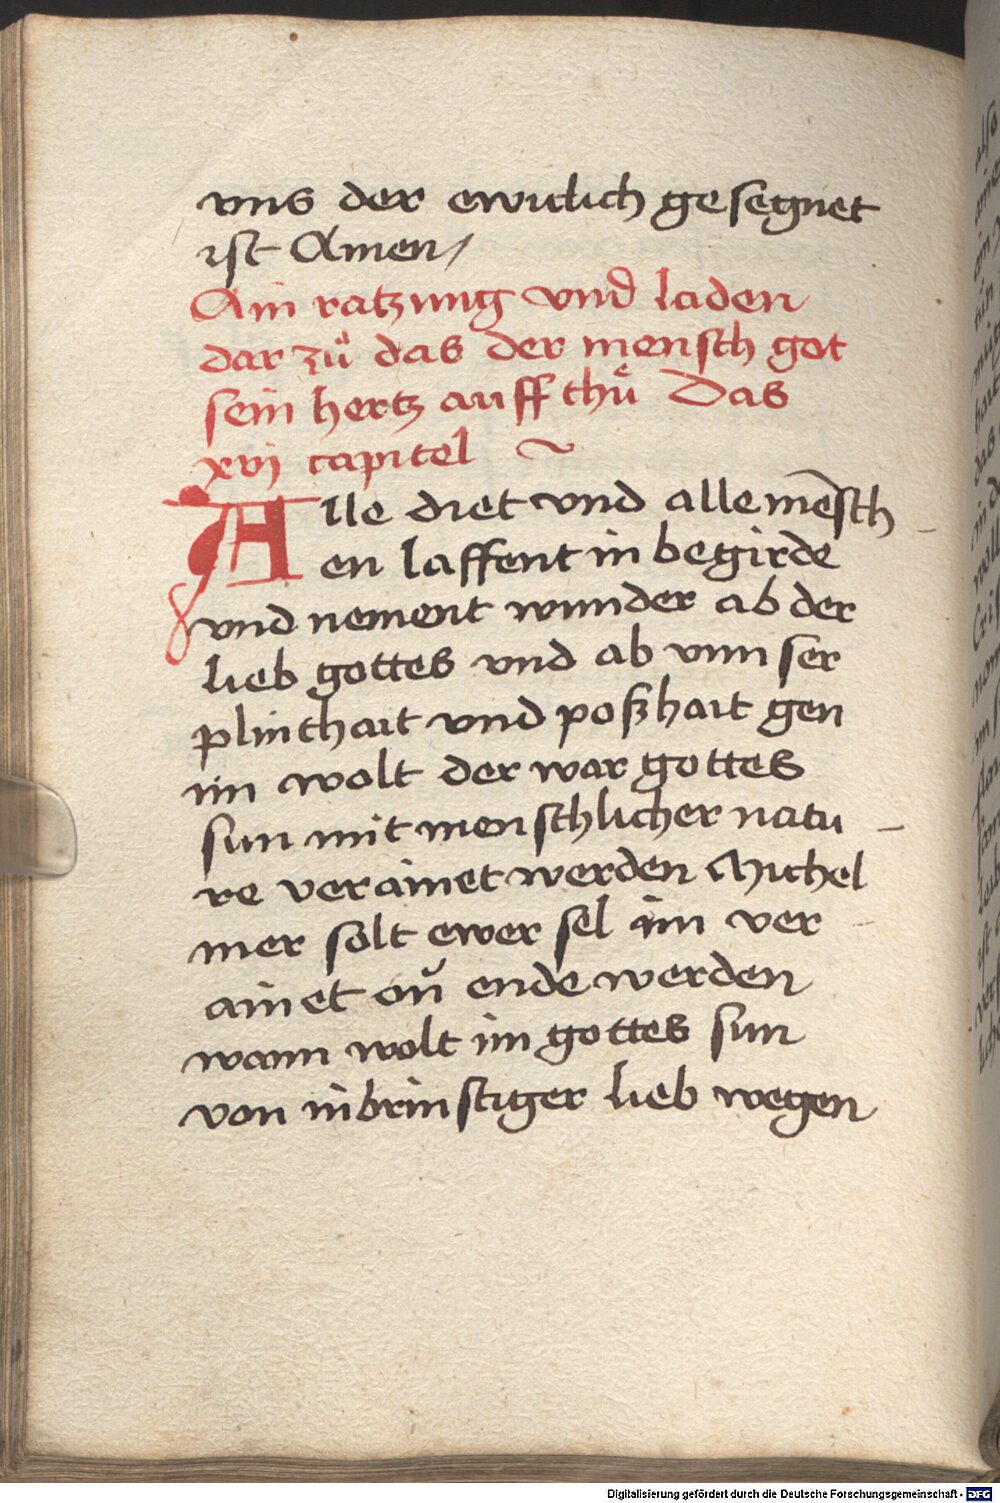 vns der ewiclich gesegnet
ist Amen/
Ain ratzung vnd laden
dar zů das der mensch got
sein hertz auff thů Das
xvj capitel ~
Alle diet vnd alle mēsch-
en laffent in begirde
vnd nement wunder ab der
lieb gottes vnd ab vnnser
plinthait vnd poßhait gen
im wolt der war gottes
sun mit menschlicher natu-
re verainet werden Michel
mer solt ewer sel im ver-
ainet on̄ ende werden
wann wolt im gottes sun
von inbrinstiger lieb wegen
Digitalisierung gefördert durch die Deutsche Forschungsgemeinschaft - DFG